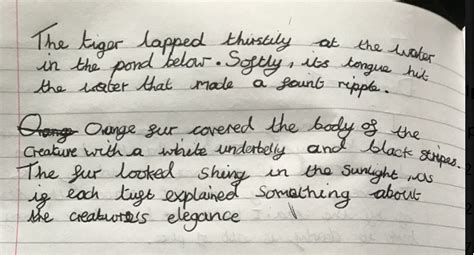 The tiger lapped thirstily at the water
in the pond below. Softly, its tongue hit
the water that made a faint ripple.
Orange Orange fur covered the body of the
creature with a white underbelly and black stripes.
The fur looked shiny in the sunlight, as
if each tuft explained something about
the creatures elegance